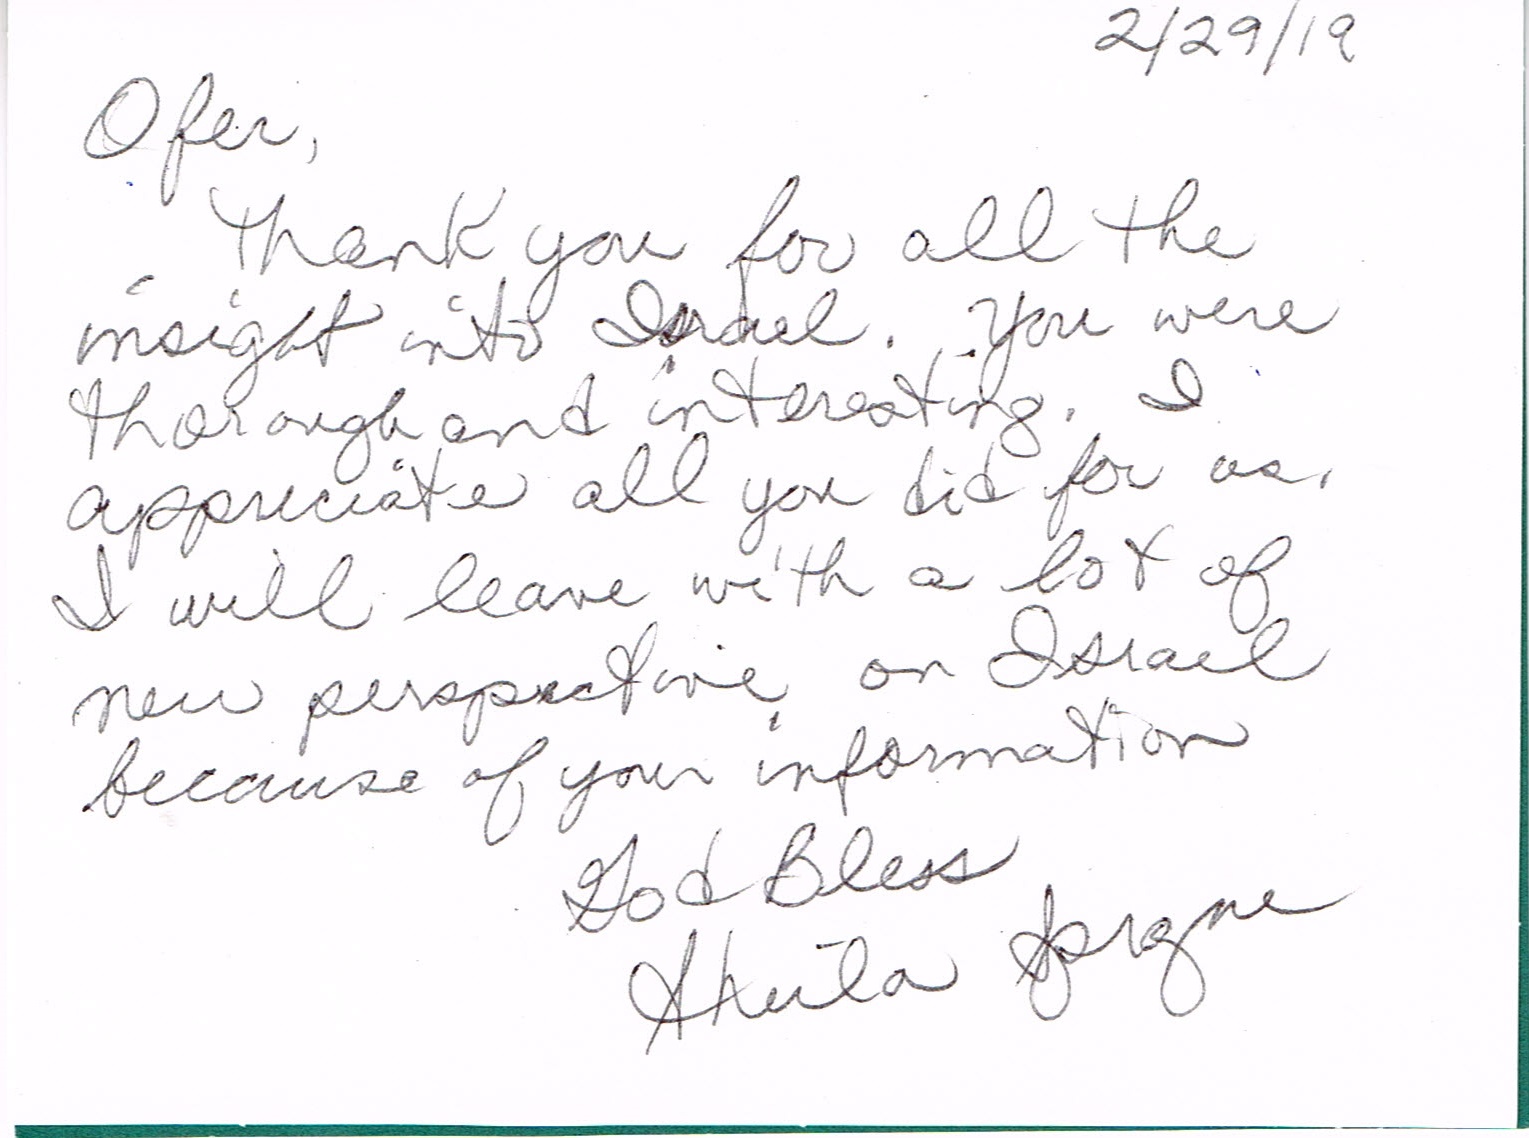 2/29/19
Ofer,
Thank you for all the
insight into Israel. You were
thorough and interesting. I
appreciate all you did for us.
I will leave with a lot of
new perspective on Israel
because of your information
God Bless
Sheila